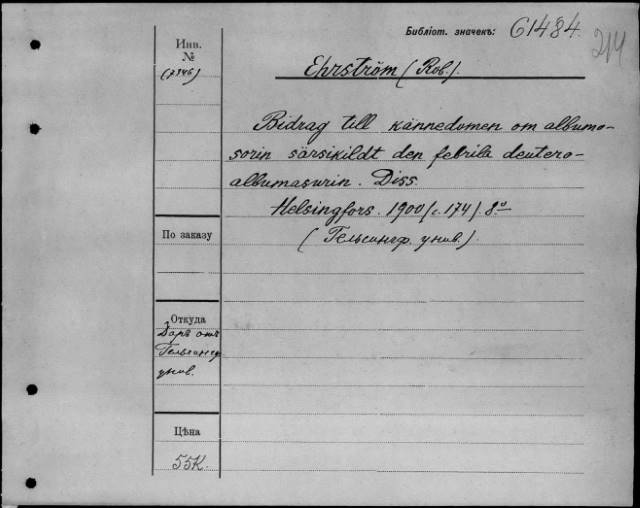 Библіот. значекъ: 61484.
214
Инв.
№
(7346)
Ehrström (Rob.).
Bidrag till kännedomen om albumo-
sorin särsikildt den febrila deutero-
albumasurin. Diss.
Helsingfors. 1900 (c. 174) 8º
(Гельсингф. унив.).
По заказу
Откуда
Даръ отъ
Гельсингф
унив.
Цѣна
55К.